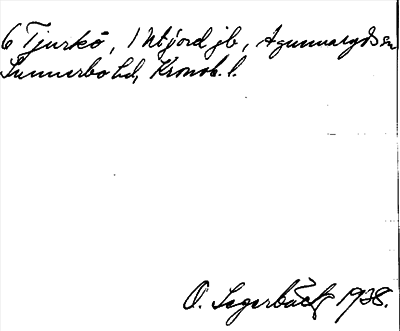 6 Tjurkö, 1 utjord jb, Agunnaryds sn
Sunnerbo hd, Kronob. l.
O. Segerbäck 1938.